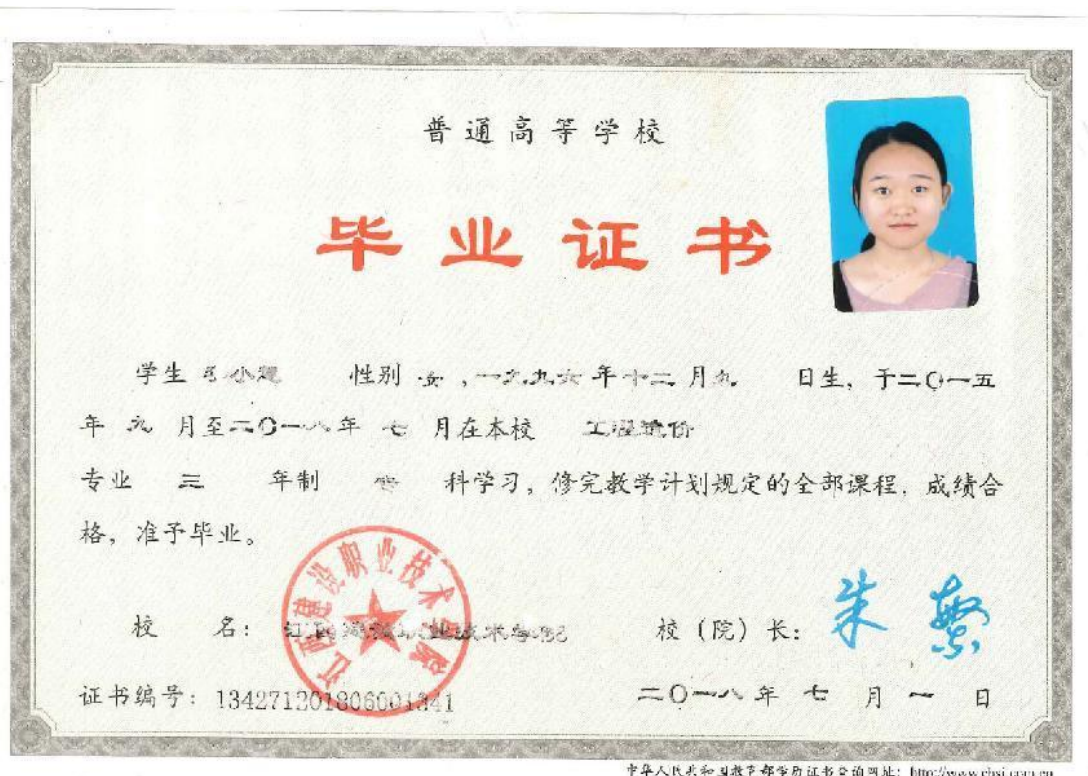 普通高等学校
毕业证书
学生 小 性别 女，一九九六年十二月九 日生，于二〇一五
年 九 月至二〇一八年 七 月在本校 工程造价
专业 三 年制 科学习，修完教学计划规定的全部课程，成绩合
格，准予毕业。
江西建设职业技术学院
校 名：江西建设职业技术学院 校（院）长：朱繁
证书编号：134271201806001341 二〇一八年 七 月 一 日
中华人民共和国教育部学历证书查询网址：http://www.chsi.com.cn